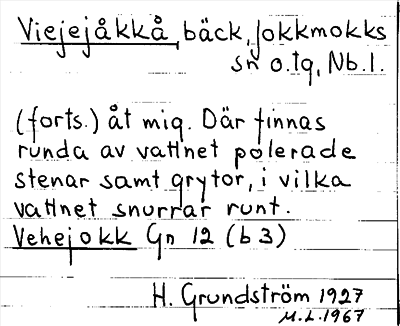 Viejejåkkå, bäck, Jokkmokks
sn o. tg, Nb. l.
(forts.) åt mig. Där finnas
runda av vattnet polerade
stenar samt grytor, i vilka
vattnet snurrar runt.
Vehejokk Gn 12 (b 3)
H. Grundström 1927
M.L. 1967